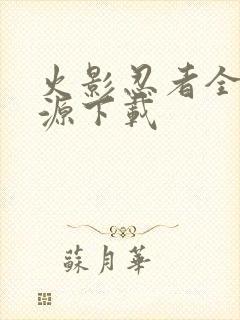 火影忍者全
源下載
蘇月華